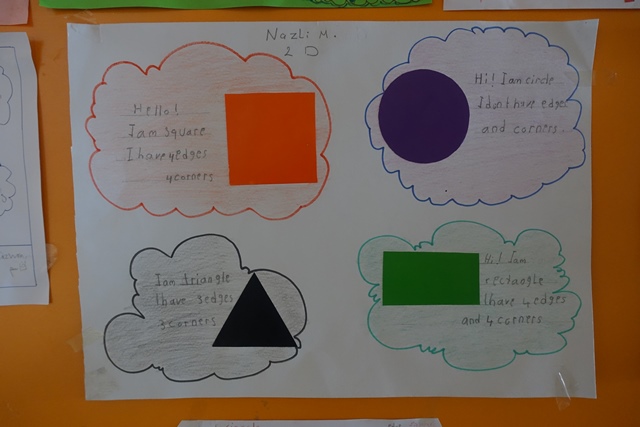 Nazli M.
2 D
Hello!
I am Square
I have 4 edges
4 corners
Hi! I am circle
I dont have edge
and corners.
I am triangle
I have 3 edges
3 corners
Hi! I am
rectangle
I have 4 edges
and 4 corners